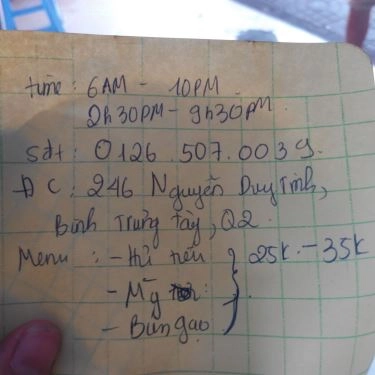 time: 6AM - 10PM
2h30PM - 9h30PM.
Sđt: 0126.507.0039.
ĐC: 246 Nguyễn Duy Trinh,
Bình Trưng Tây, Q2.
Menu: - Hủ tiếu } 25k - 35k
- Mỳ
- Bún gạo